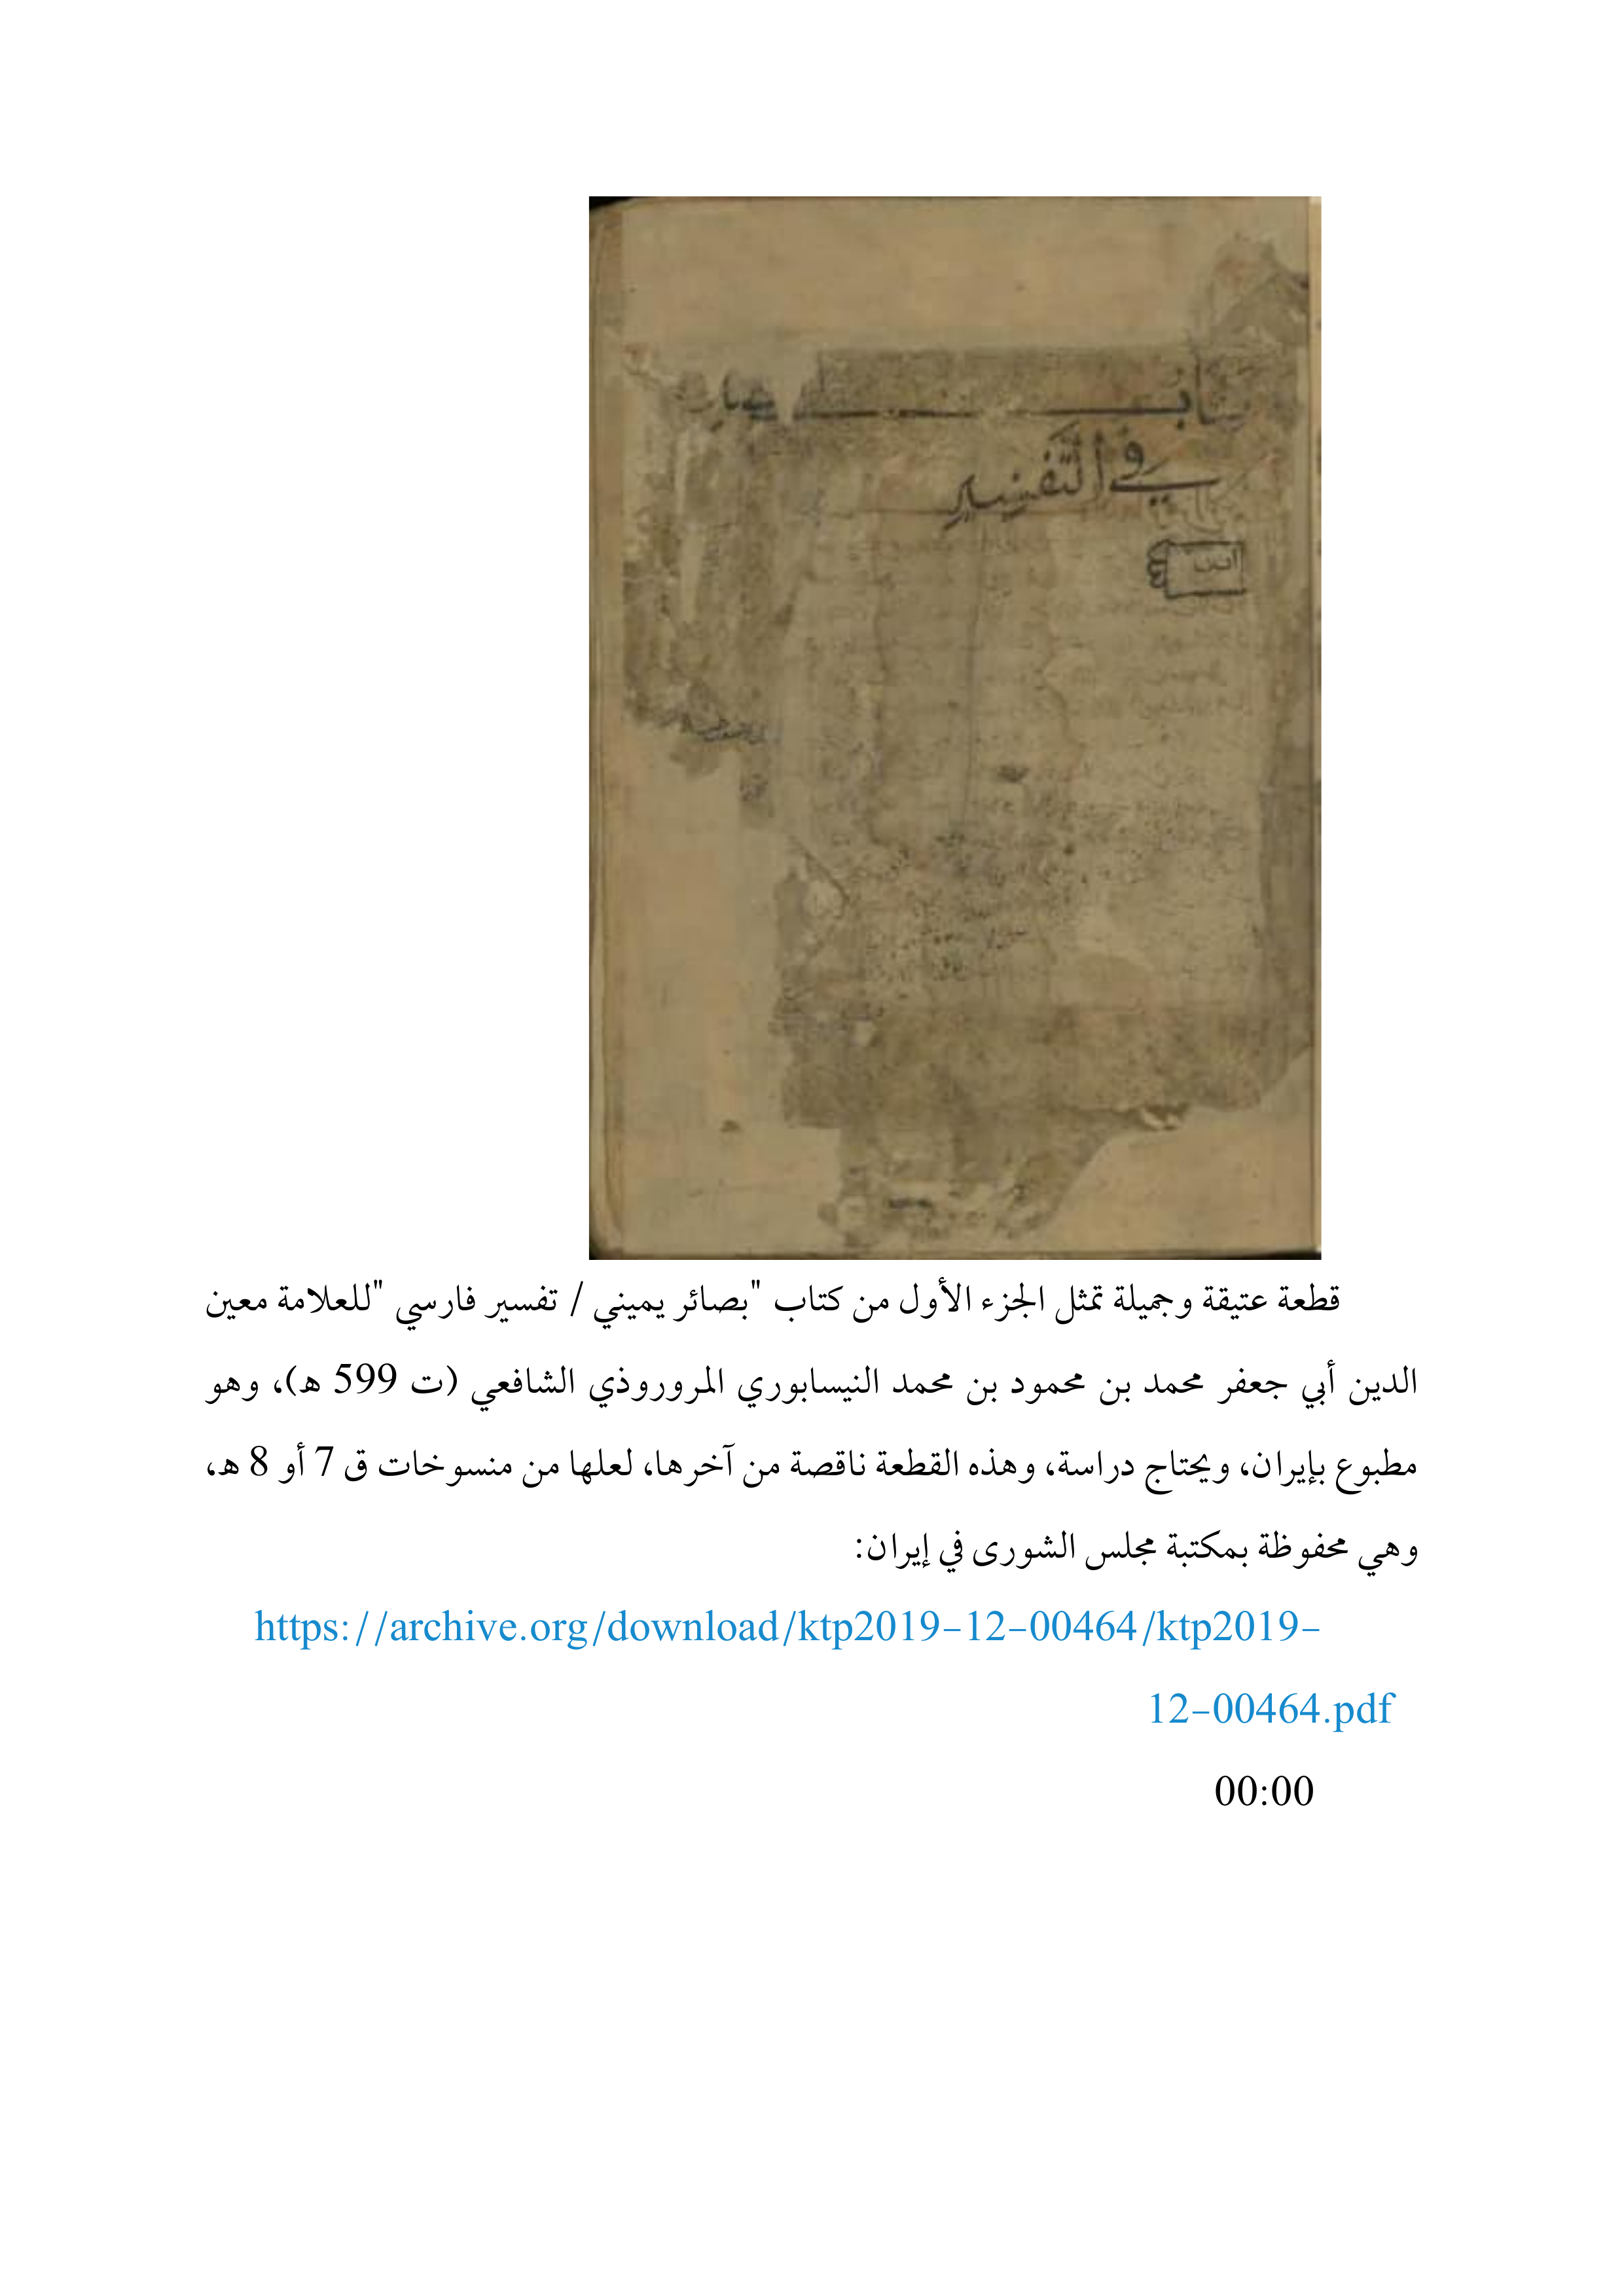 في التفسير
قطعة عتيقة وجميلة تمثل الجزء الأول من كتاب "بصائر يميني / تفسير فارسي "للعلامة معين
الدين أبي جعفر محمد بن محمود بن محمد النيسابوري المروروذي الشافعي (ت 599 هـ)، وهو
مطبوع بإيران، ويحتاج دراسة، وهذه القطعة ناقصة من آخرها، لعلها من منسوخات ق 7 أو 8 هـ،
وهي محفوظة بمكتبة مجلس الشورى في إيران:
https://archive.org/download/ktp2019-12-00464/ktp2019-
12-00464.pdf
00:00